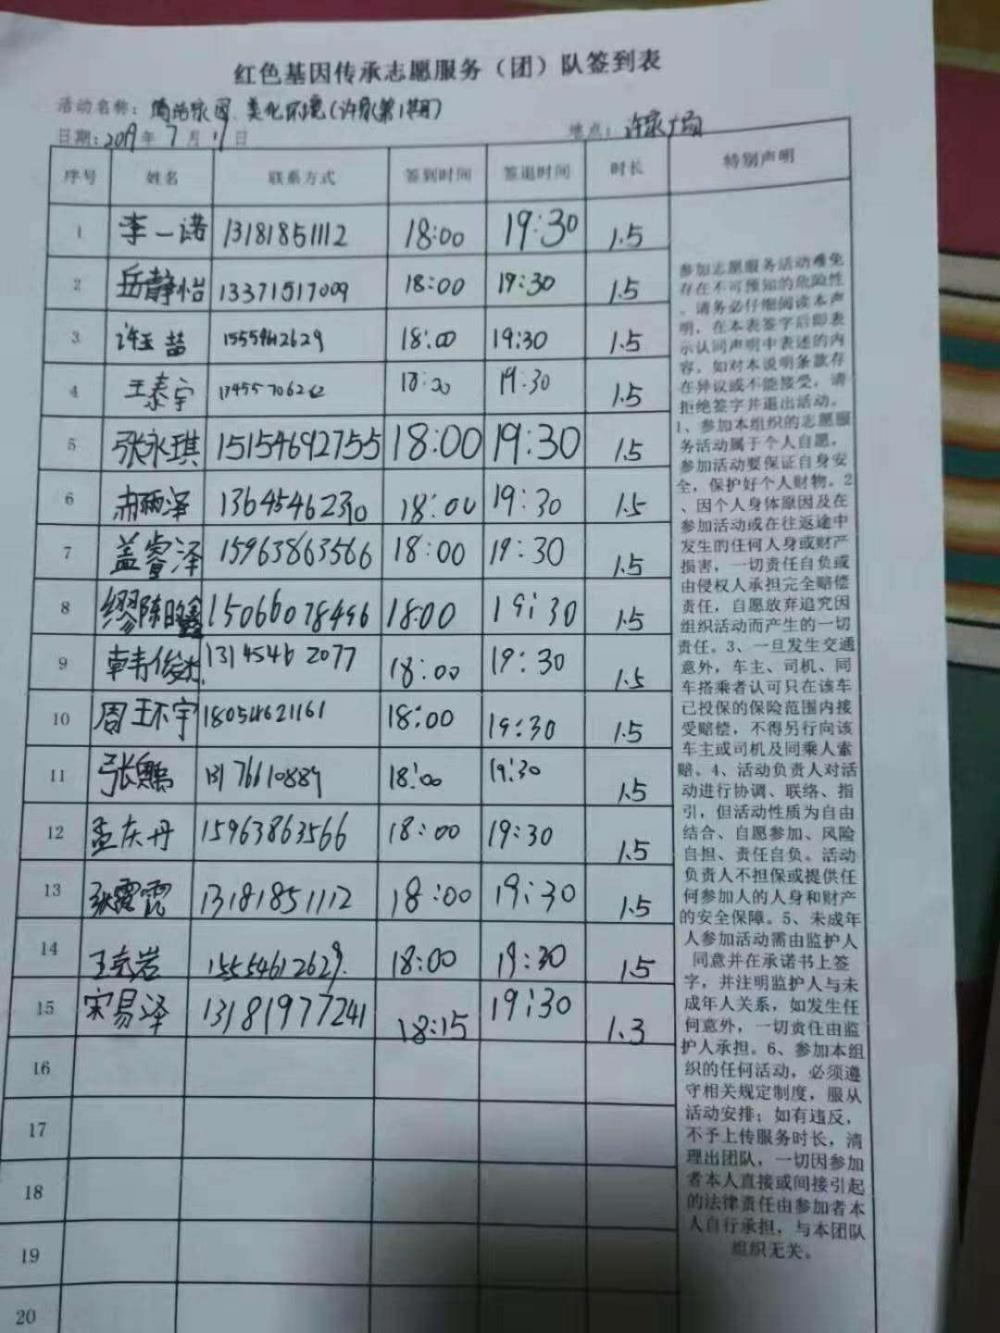 红色基因传承志愿服务（团）队签到表
活动名称：清洁家园 美化环境(许家第1期)
日期：2019年7月11日 地点：许家广场
序号 姓名 联系方式 签到时间 签退时间 时长 特别声明
1 李一诺 13181851112 18:00 19:30 1.5
2 岳静怡 13371517009 18:00 19:30 1.5
3 许玉喆 18:00 19:30 1.5
4 王泰宇 19:30 1.5
5 张永琪 15154692755 18:00 19:30 1.5
6 13645462390 18:00 19:30 1.5
7 盖睿泽 15963863566 18:00 19:30 1.5
8 缪陈 15066078496 18:00 19:30 1.5
9 韩俊杰 13145462077 18:00 19:30 1.5
10 周环宇 18054621161 18:00 19:30 1.5
11 张鹏 13176610889 18:00 19:30 1.5
12 孟庆丹 15963863566 18:00 19:30 1.5
13 张霞霞 13181851112 18:00 19:30 1.5
14 王克岩 15554612629. 18:00 19:30 1.5
15 宋易泽 13181977241 18:15 19:30 1.3
16
17
18
19
20
参加志愿服务活动难免
存在不可预知的危险性
，请务必仔细阅读本声
明，在本表签字后即表
示认同声明中表述的内
容，如对本说明条款存
在异议或不能接受，请
拒绝签字并退出活动。
1、参加本组织的志愿服
务活动属于个人自愿，
参加活动要保证自身安
全，保护好个人财物。2
、因个人身体原因及在
参加活动或在往返途中
发生的任何人身或财产
损害，一切责任自负或
由侵权人承担完全赔偿
责任，自愿放弃追究因
组织活动而产生的一切
责任。3、一旦发生交通
意外，车主、司机、同
车搭乘者认可只在该车
已投保的保险范围内接
受赔偿，不得另行向该
车主或司机及同乘人索
赔。4、活动负责人对活
动进行协调、联络、指
引，但活动性质为自由
结合、自愿参加、风险
自担、责任自负。活动
负责人不担保或提供任
何参加人的人身和财产
的安全保障。5、未成年
人参加活动需由监护人
同意并在承诺书上签
字，并注明监护人与未
成年人关系，如发生任
何意外，一切责任由监
护人承担。6、参加本组
织的任何活动，必须遵
守相关规定制度，服从
活动安排；如有违反，
不予上传服务时长，清
理出团队，一切因参加
者本人直接或间接引起
的法律责任由参加者本
人自行承担，与本团队
组织无关。